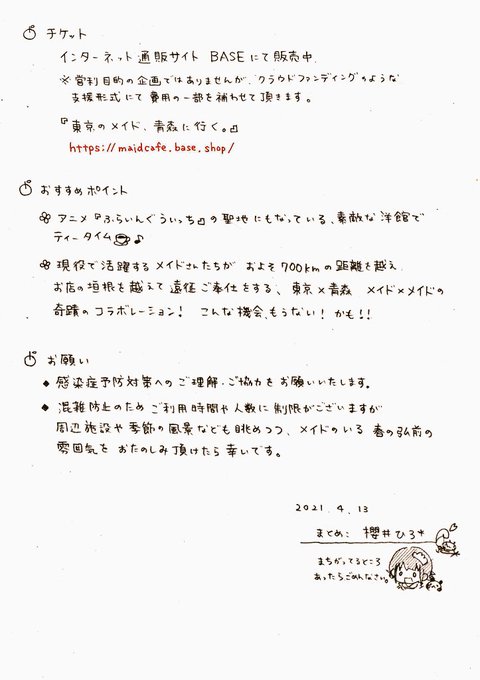 チケット
インターネット通販サイト BASEにて販売中
※営利目的の企画ではありませんが、クラウドファンディングのような
支援形式にて費用の一部を補わせて頂きます。
『東京のメイド、青森に行く。』
https://maidcafe.base.shop/
おすすめポイント
アニメ『ふらいんぐうぃっち』の聖地にもなっている、素敵な洋館で
ティータイム♪
現役で活躍するメイドさんたちが およそ700kmの距離を越え
お店の垣根を越えて遠征ご奉仕をする、東京×青森 メイド×メイドの
奇蹟のコラボレーション! こんな機会、もうない!かも!!
お願い
◆ 感染症予防対策へのご理解・ご協力をお願いいたします。
◆ 混雑防止のためご利用時間や人数に制限がございますが
周辺施設や季節の風景なども眺めつつ、メイドのいる 春の弘前の
雰囲気を おたのしみ頂けたら幸いです。
2021.4.13
まとめ: 櫻井ひろ
まちがってるところ
あったらごめんなさい。